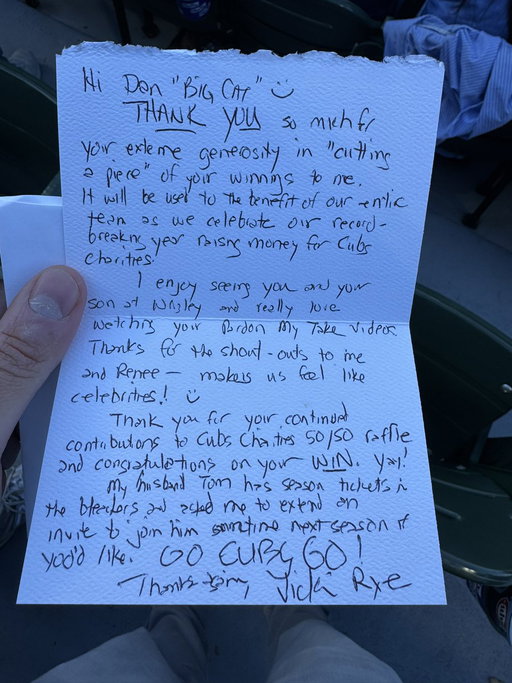 Hi Dan "BIG CAT" :)
THANK YOU so much fr
your exteme generosity in "cutting
a piece" of your winnings to me.
It will be used to the benefit of our entire
team as we celebrate our record-
breaking year raising money for Cubs
charities.
I enjoy seeing you and your
son at Wrigley and really love
watching your Pardon My Take videos
Thanks for the shout-outs to me
and Renee - makes us feel like
celebrities! :)
Thank you for your continued
contributions to Cubs Charities 50/50 raffle
and congratulations on your WIN. Yay!
My husband Tom has season tickets in
the bleachers and asked me to extend an
invite to join him sometime next season if
you'd like. GO CUBS GO!
Thanks again, Vicki Rye